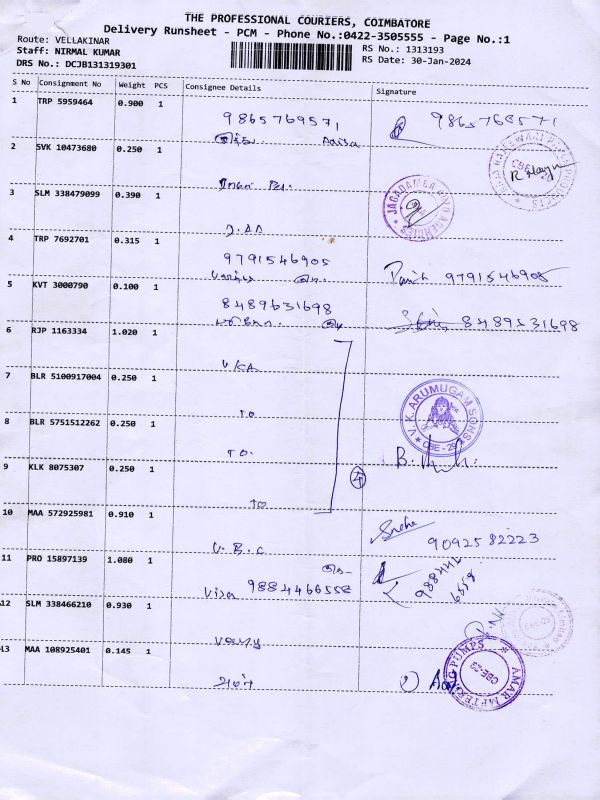 THE PROFESSIONAL COURIERS, COIMBATORE
Delivery Runsheet - PCM - Phone No.:0422-3505555 - Page No.:1
Route: VELLAKINAR
RS No.: 1313193
Staff: NIRMAL KUMAR
RS Date: 30-Jan-2024
DRS No.: DCJB131319301
S No Consignment No Weight PCS Consignee Details Signature
1 TRP 5959464 0.900 1
9865769571 9865769571
2 SVK 10473680 0.250 1
CBE
3 SLM 338479099 0.390 1
JAGADAMBA AGENCIES
4 TRP 7692701 0.315 1
9791546905 9791546905
5 KVT 3000790 0.100 1
8489631698 8489531698
6 RJP 1163334 1.020 1
VKA
7 BLR 5100917004 0.250 1
TO
V. K. ARUMUGAM SONS
CBE - 29
8 BLR 5751512262 0.250 1
TO.
9 KLK 8075307 0.250 1
TO
10 MAA 572925981 0.910 1
V.B.C
9092582223
11 PRO 15897139 1.080 1
9884466558
12 SLM 338466210 0.930 1
13 MAA 108925401 0.145 1
PUMPS
AMAR
CBE-29